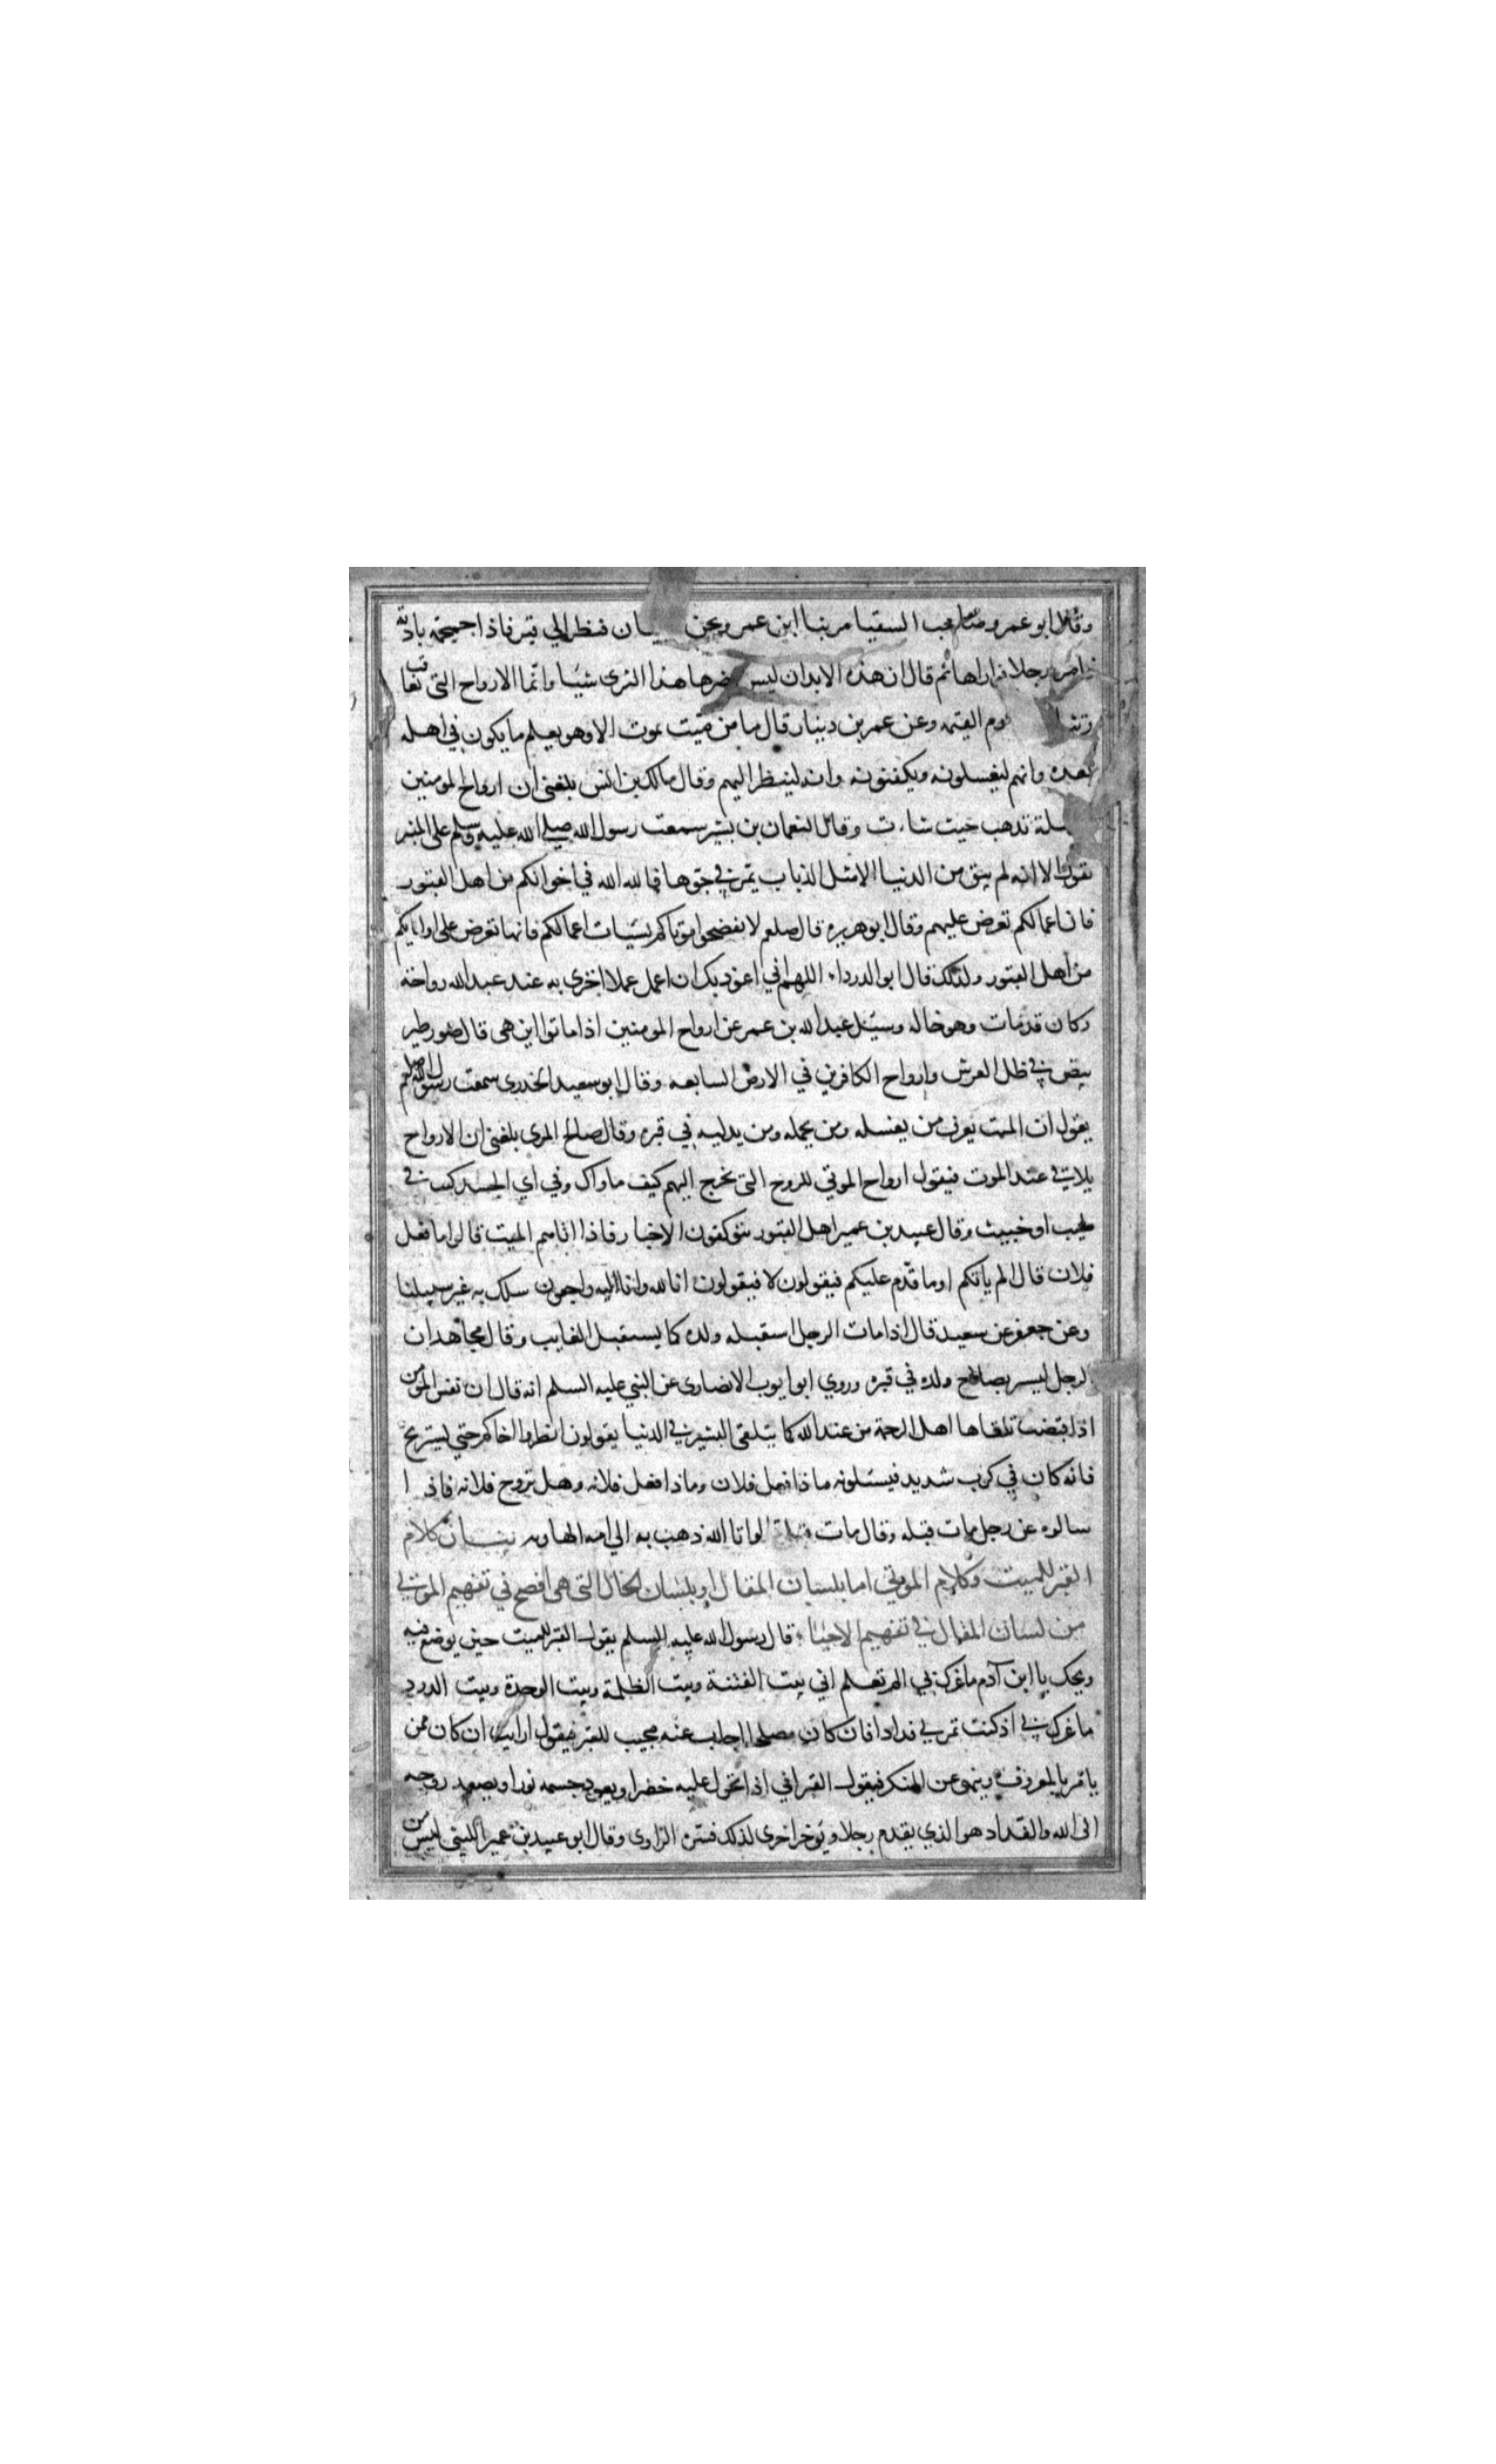 وقال ابو عمرو صاحب السقيا مر بنا ابن عمر ونحن فنظر الي قبر فاذا جمجمة بادية
فامر رجلا فواراها ثم قال ان هذه الابدان ليس يضرها هذا الثرى شيئا وانما الارواح التي تعاقب
يوم القيمه وعن عمر بن دينار قال ما من ميت يموت الا وهو يعلم ما يكون في اهله
بعده وانهم ليغسلونه ويكفنونه وانه لينظر اليهم وقال مالك بن انس بلغني ان ارواح المومنين
تذهب حيث شاءت وقال النعمان بن بشير سمعت رسول الله صلي الله عليه وسلم على المنبر
يقول الا انه لم يبق من الدنيا الا مثل الذباب يمر في جوها فالله الله في اخوانكم من اهل القبور
فان اعمالكم تعرض عليهم وقال ابو هريره قال صلعم لا تفضحوا موتاكم بسيات اعمالكم فانها تعرض على اوليايكم
من اهل القبور ولذلك قال ابو الدرداء اللهم اني اعوذ بك ان اعمل عملا اخزى به عند عبد الله رواحه
وكان قد مات وهو خاله وسئل عبد الله بن عمر عن ارواح المومنين اذا ماتوا اين هي قال صور طير
بيض في ظل العرش وارواح الكافرين في الارض السابعه وقال ابو سعيد الخدرى سمعت رسول الله صلعم
يقول ان الميت يعرف من يغسله ومن يحمله ومن يدليه في قبره وقال صالح المري بلغني ان الارواح
يلاقي عند الموت فيقول ارواح الموتي للروح التي تخرج اليهم كيف ماواك وفي اي الجسد كنت في
طيب او خبيث وقال عبيد بن عمير اهل القبور يتوكفون الاخبار فاذا اتاهم الميت قالوا ما فعل
فلان قال الم ياتكم اوما قدم عليكم فيقولون لا فيقولون انا لله وانا اليه راجعون سلك به غير سبيلنا
وعن جعفر عن سعيد قال اذا مات الرجل استقبله ولده كما يستقبل الغايب وقال مجاهد ان
الرجل ليسر بصلاح ولده في قبره وروي ابو ايوب الانصارى عن النبي عليه السلم انه قال ان نفس المومن
اذا قبضت تلقاها اهل الرحمة من عند الله كما يتلقى البشير في الدنيا يقولون انظروا اخاكم حتي يستريح
فانه كان في كرب شديد فيسئلونه ماذا فعل فلان وماذا فعل فلانه وهل تزوج فلانه فاذا
سالوه عن رجل مات قبله وقال مات قبلي قالوا انا لله ذهب به الي امه الهاويه بيان كلام
القبر للميت وكلام الموتي اما بلسان المقال او بلسان الحال التي هي افصح في تفهيم الموتي
من لسان المقال في تفهيم الاحيا قال رسول الله عليه السلم يقول القبر للميت حين يوضع فيه
ويحك يا ابن آدم ما غرك بي الم تعلم اني بيت الفتنة وبيت الظلمة وبيت الوحدة وبيت الدود
ما غرك بي اذ كنت تمر بي فدادا فان كان مصلحا اجاب عنه مجيب للقبر فيقول ارايت ان كان ممن
يامر بالمعروف وينهى عن المنكر فيقول القبر اني اذا اتحول عليه خضرا ويعود جسمه نورا ويصعد روحه
الى الله والفداد هو الذي يقدم رجلا ويوخر اخرى لذلك فسره الراوى وقال ابو عبيد بن عمير الليثي ليس من